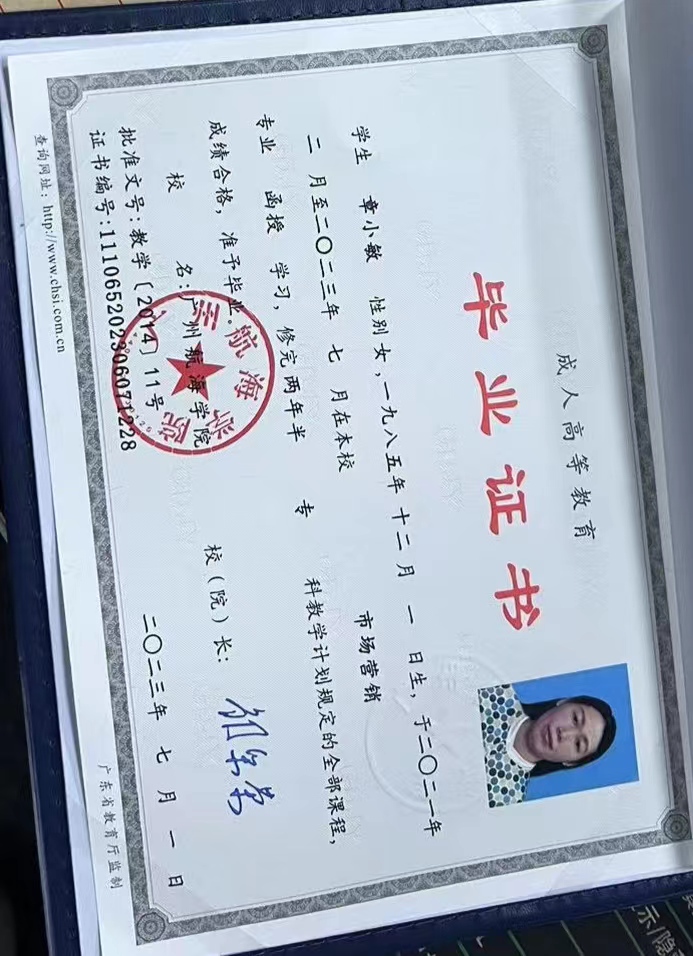 成人高等教育
毕业证书
学生 章小敏 性别 女，一九八五年 十二 月 一 日生，于二〇二一年
二 月至二〇二三年 七 月在本校 市场营销
专业 函授 学习，修完 两年半 专 科教学计划规定的全部课程，
成绩合格，准予毕业。
校 名：广州航海学院 校（院）长：
批准文号：教学〔2014〕11号
证书编号：111065202306071228
二〇二三年 七 月 一 日
查询网址：http://www.chsi.com.cn
广东省教育厅监制